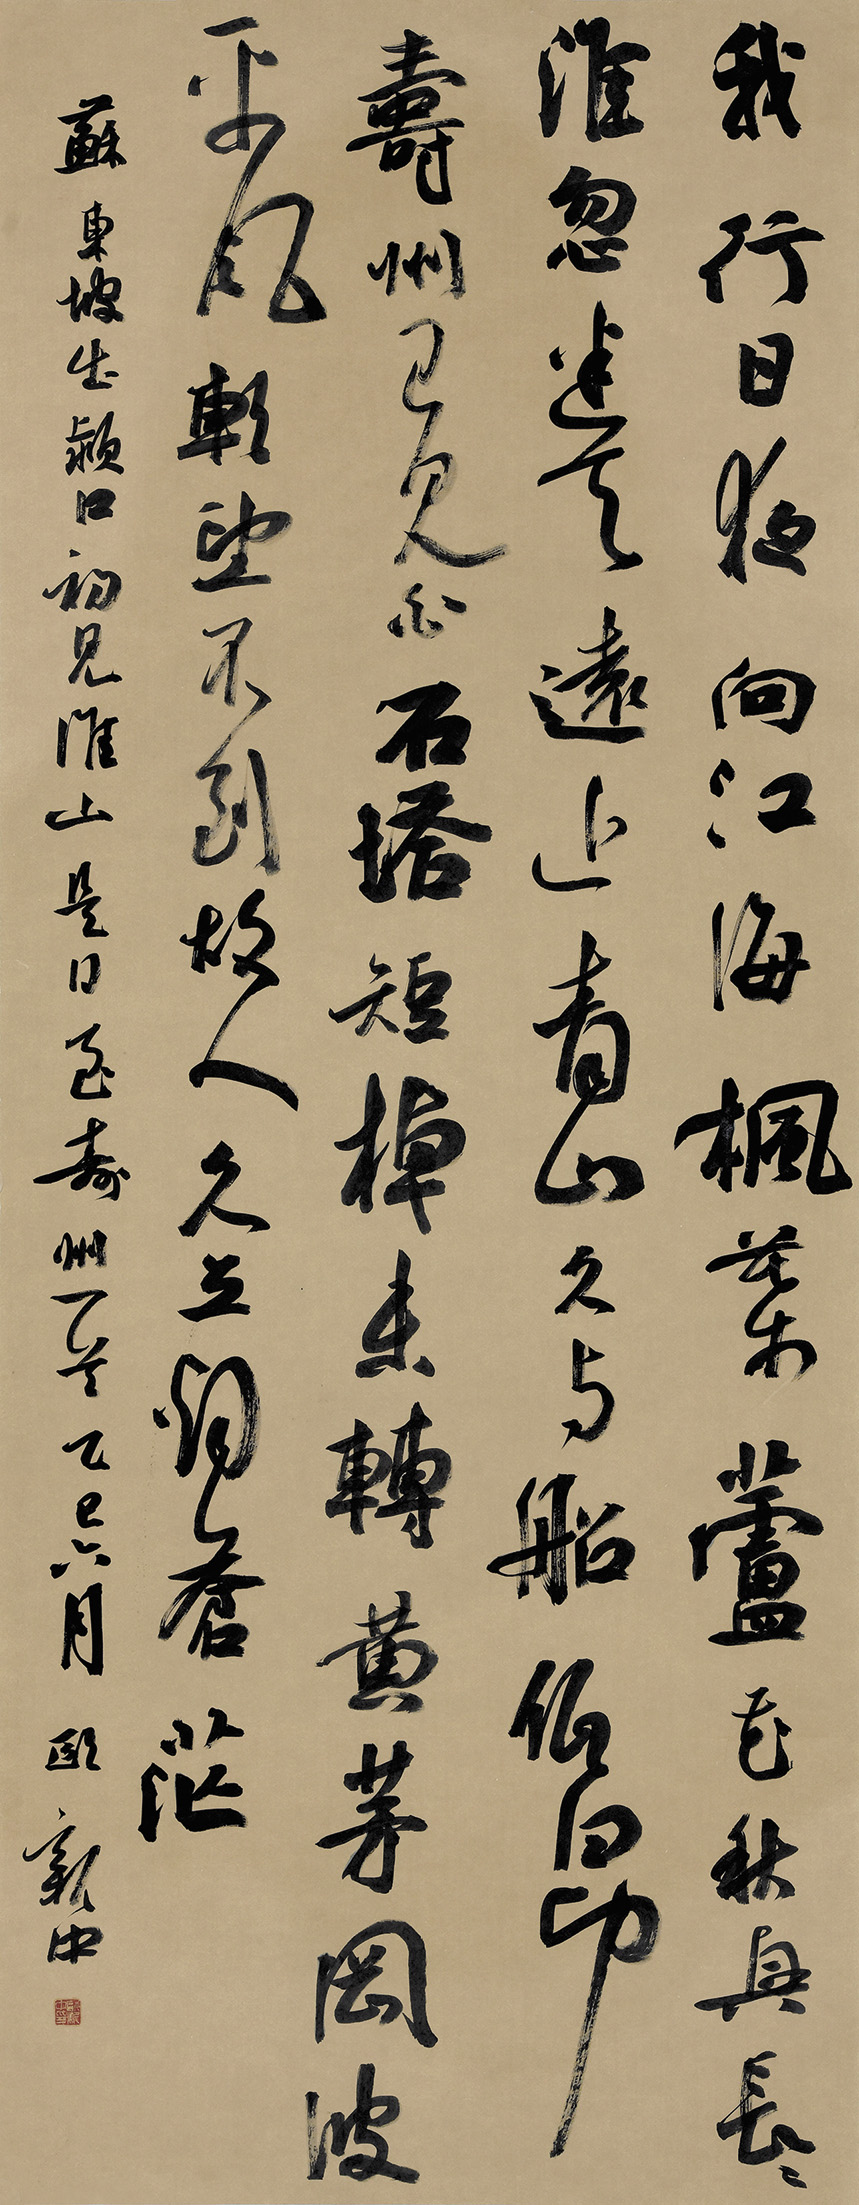 我行日夜向江海楓葉蘆花秋興長〻
淮忽迷天遠近青山久与船低昂
壽州已見白石塔短棹未轉黃茅岡波
平風軟望不到故人久立烟蒼茫
蘇東坡出潁口初見淮山是日至壽州一首乙巳六月 歐新中